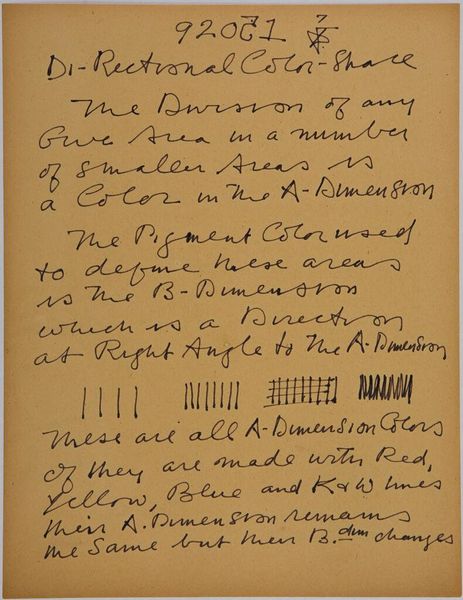 Di-Rectional Color-Space
The Division of any
Give Area in a number
of smaller Areas is
a Color in the A-Dimension
The Pigment Color used
to define these areas
is the B-Dimension
which is a Direction
at Right Angle to the A-Dimension
These are all A-Dimension Colors
If they are made with Red,
Yellow, Blue and K & W lines
their A. Dimension remains
the Same but their B. dim changes